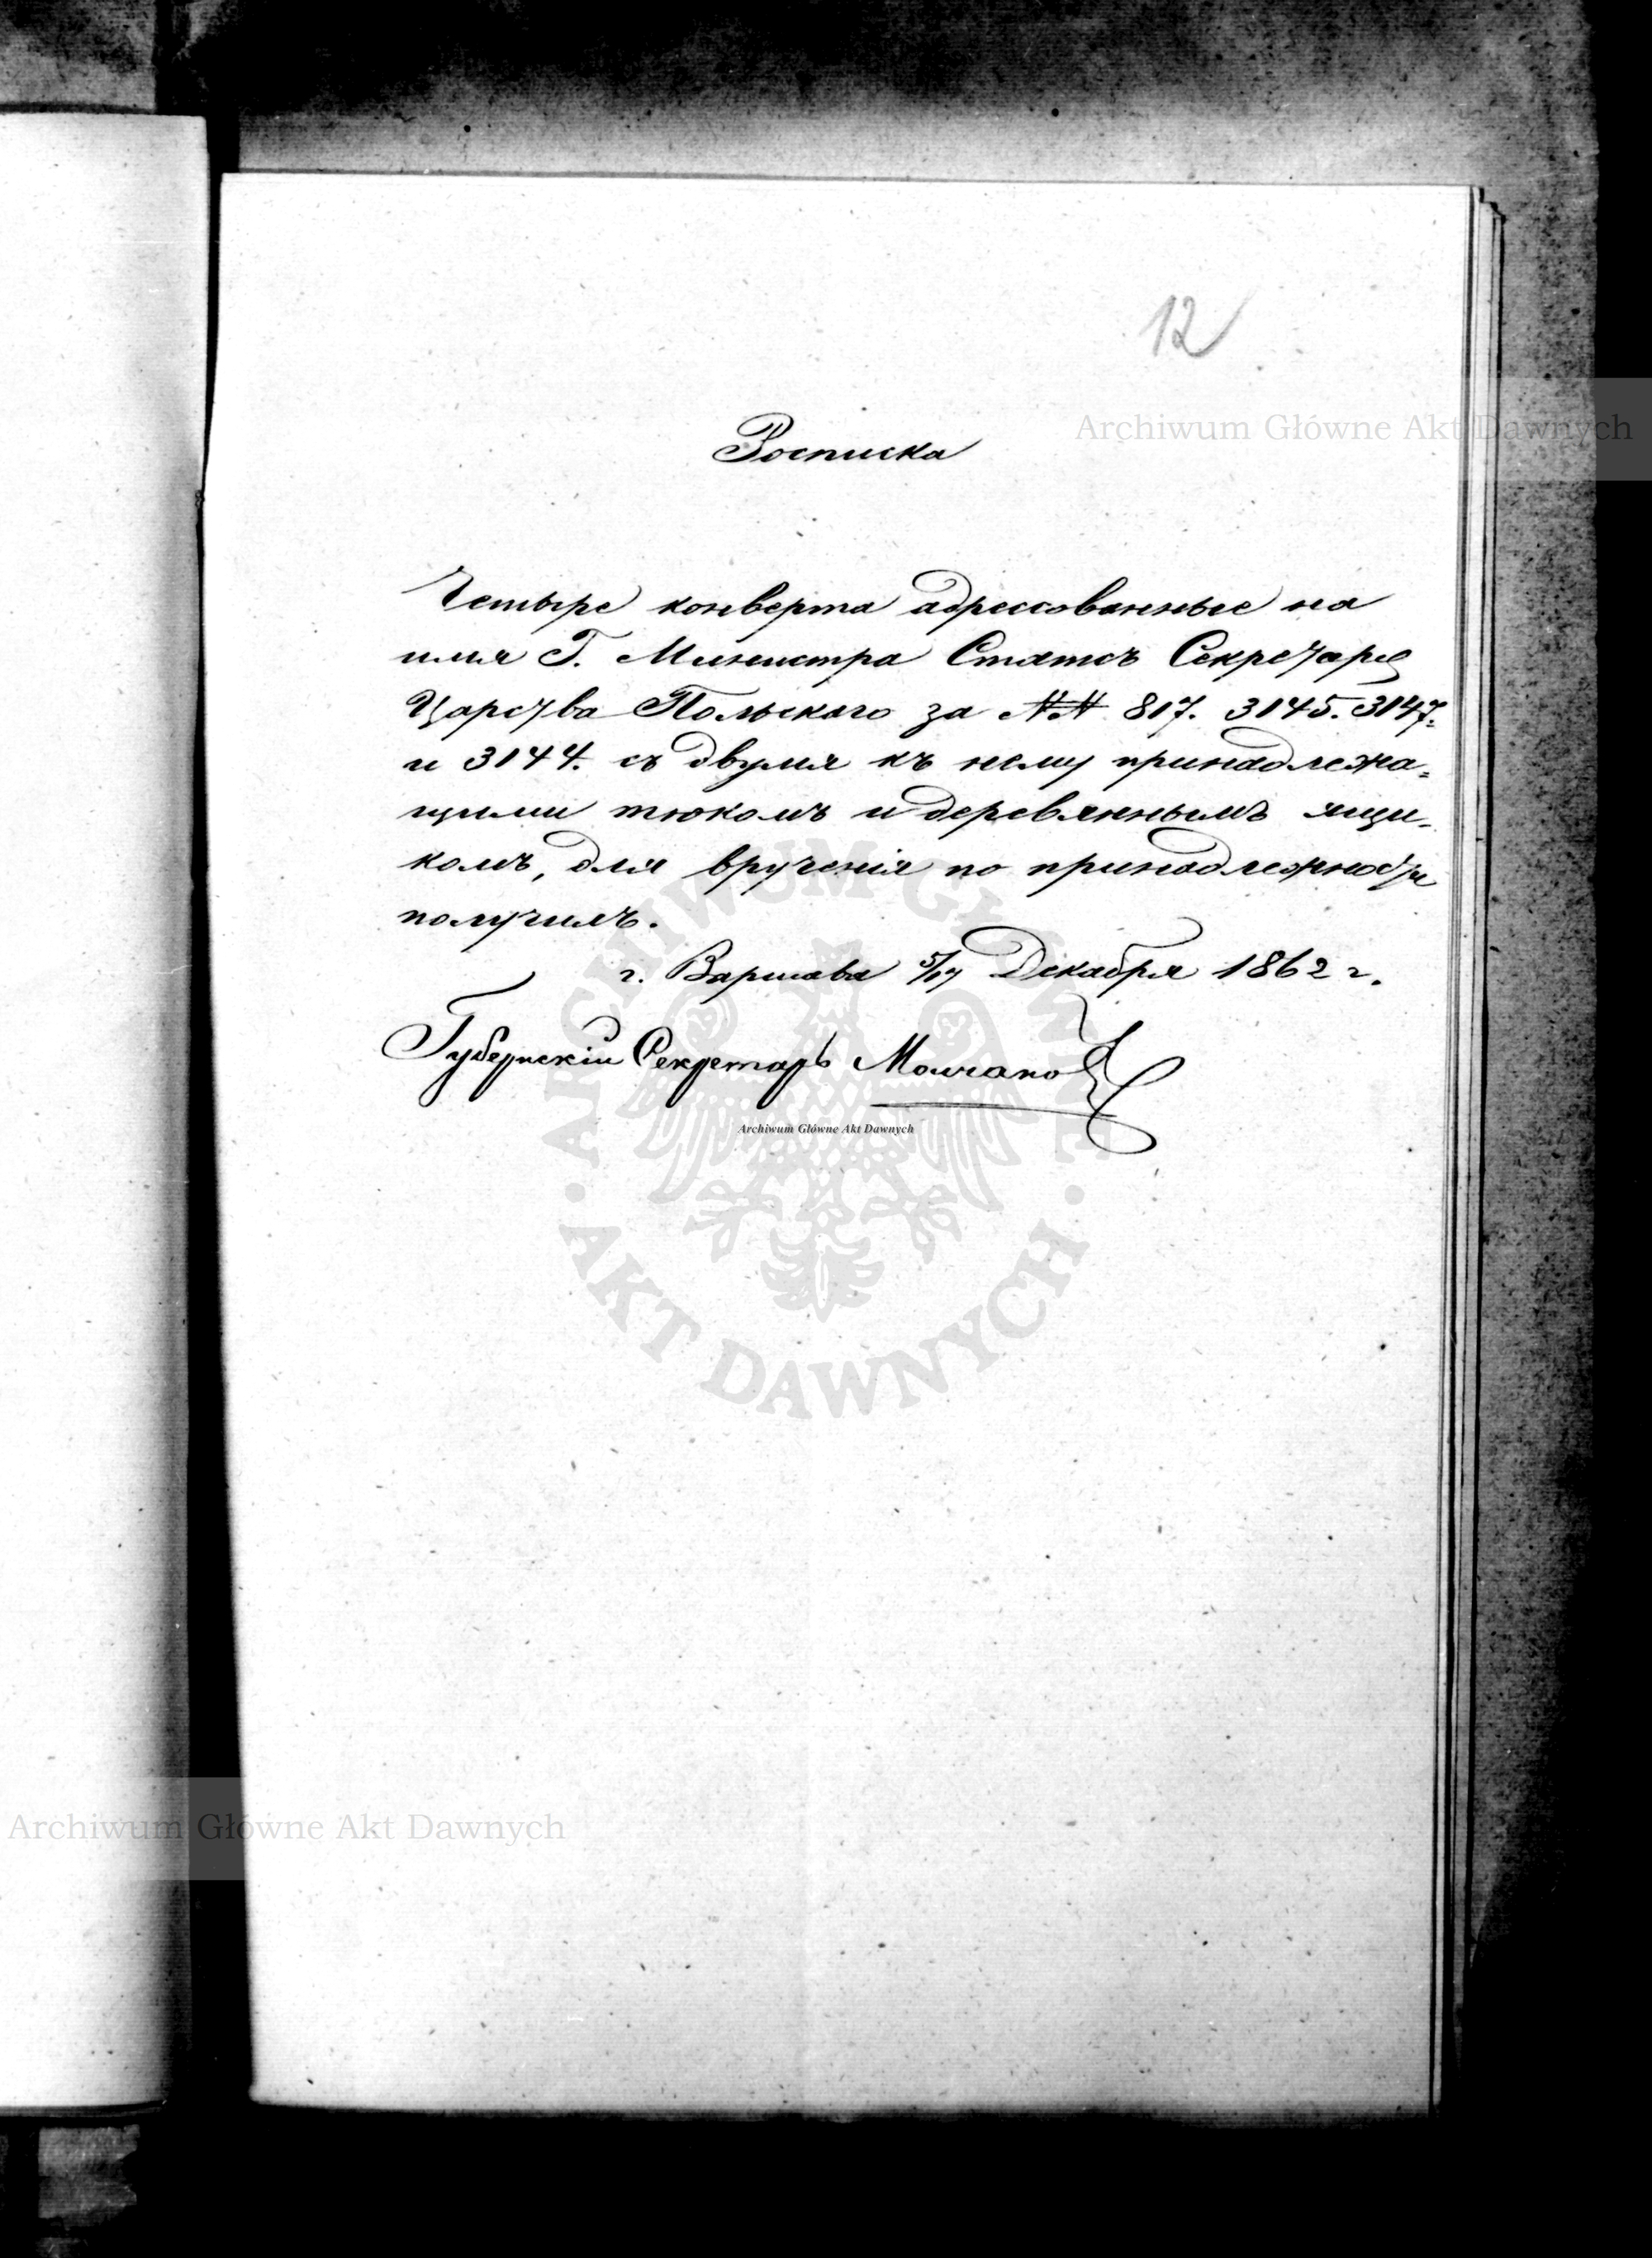 12
Росписка
Четыре конверта адрессованные на
имя Г. Министра Статсъ Секретаря
Царства Польскаго за №№ 817. 3145. 3147.
и 3144. съ двумя къ нему принадлежа=
щими тюкомъ и деревяннымъ ящи=
комъ, для врученія по принадлежности
получилъ.
г. Варшава 5/17 Декабря 1862 г.
Губернскій Секретарь Молчанов
Archiwum Główne Akt Dawnych
Archiwum Główne Akt Dawnych
ARCHIWUM GŁÓWNE
AKT DAWNYCH
Archiwum Główne Akt Dawnych